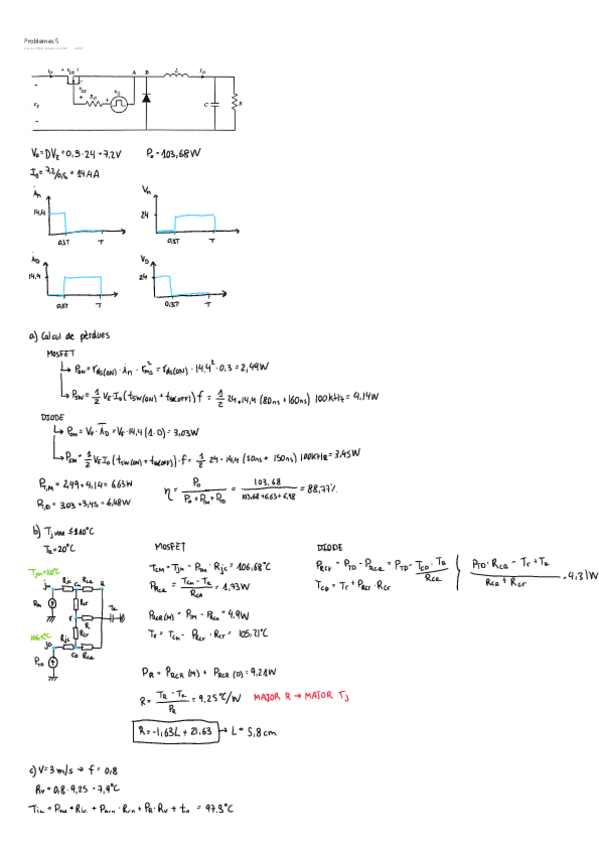 Problemes 5
A
B
L
C
R
V₀ = DV_E = 0,3 · 24 = 7,2V
P₀ = 103,68W
I₀ = 7,2/0,5 = 14,4A
i_M
14,4
0,3T
T
V_M
24
0,3T
T
i_D
14,4
0,3T
T
V_D
24
0,3T
T
a) Calcul de pèrdues
MOSFET
P_ON = r_DS(ON) · i_M · r_ms² = r_DS(ON) · 14.4² · 0,3 = 2,49W
P_SW = 1/2 V_E I₀ (t_SW(ON) + t_SW(OFF)) f = 1/2 24 · 14,4 (80ns + 160ns) 100kHz = 4.14W
DIODE
P_ON = V_F · I_D = V_F · 14,4 (1-D) = 3,03W
P_SW = 1/2 V_E I₀ (t_SW(ON) + t_SW(OFF)) · f = 1/2 24 · 14,4 (50ns + 150ns) 100kHz = 3.45W
P_T,M = 2,49 + 4,14 = 6.63W
P_T,D = 3.03 + 3,45 = 6,48W
η = P₀ / (P₀ + P_M + P_D) = 103,68 / (103,68 + 6,63 + 6,48) = 88,77%
b) T_j max ≤ 110°C
T_a = 20°C
MOSFET
T_CM = T_jM - P_TM · R_jC = 106,68°C
P_RCA = (T_CM - T_a) / R_CA = 1,73W
P_RCR(M) = P_TM - P_RCA = 4.9W
T_r = T_CM - P_RCr · R_Cr = 105,21°C
DIODE
P_RCr = P_TD - P_RCA = P_TD - (T_CD - T_a) / R_CA
T_CD = T_r + P_RCr · R_Cr
(P_TD · R_CA - T_r + T_a) / (R_CA + R_Cr) = 4,31W
P_R = P_RCR (M) + P_RCR (D) = 9,21W
R = (T_R - T_a) / P_R = 9.25°C/W
MAJOR R → MAJOR T_j
R = -1,63L + 21,63 → L = 5,8cm
c) V = 3m/s → f = 0,8
R_V = 0,8 · 9,25 = 7,4°C